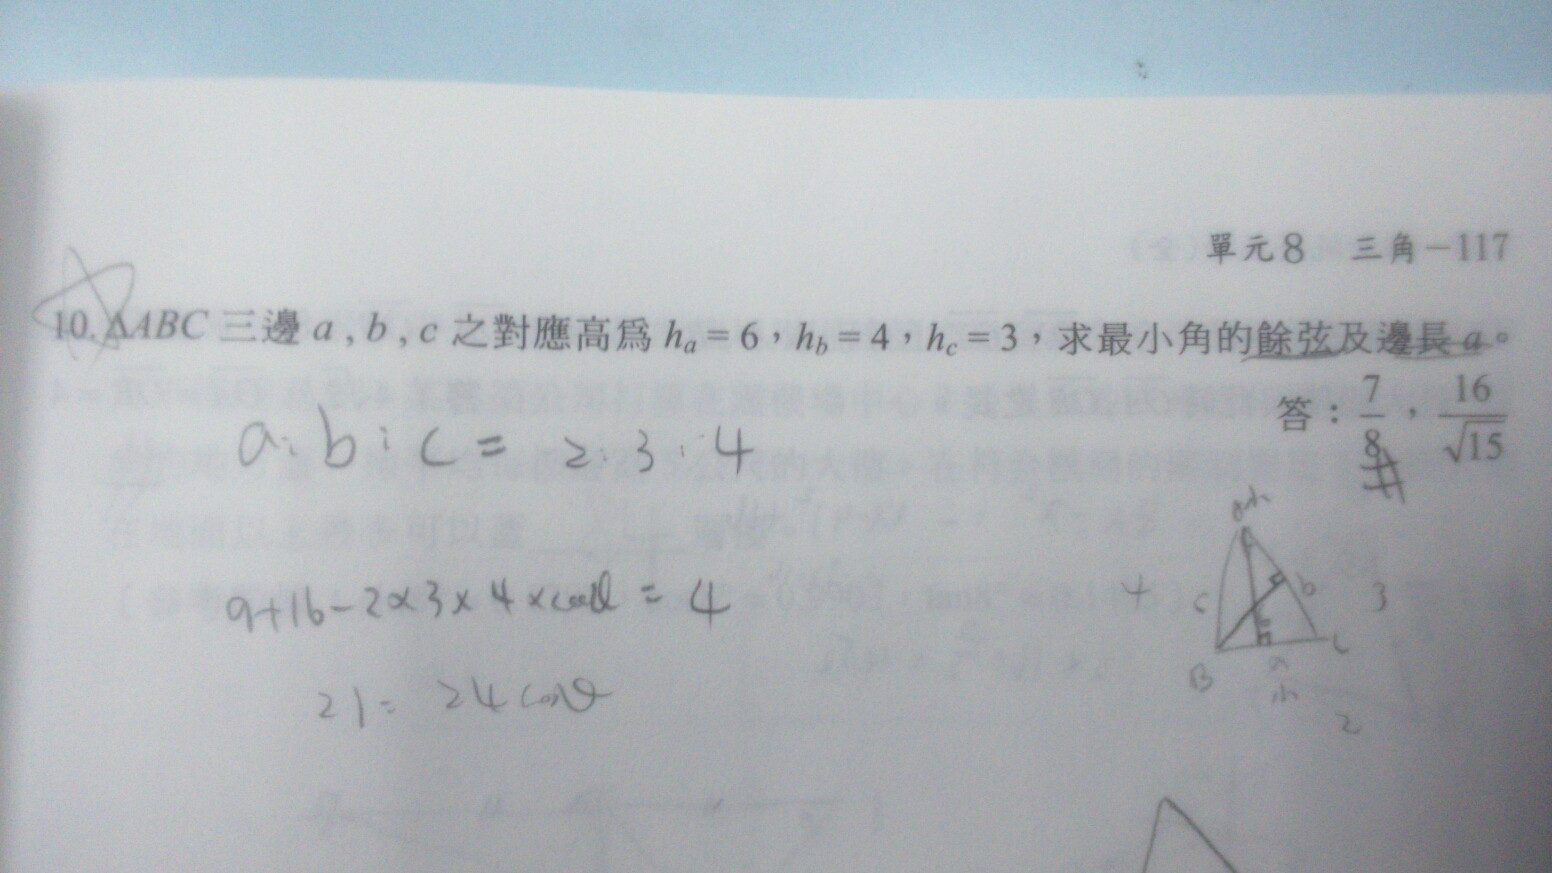 單元8 三角－117
10. ΔABC 三邊 a , b , c 之對應高為 hₐ = 6，h_b = 4，h_c = 3，求最小角的餘弦及邊長 a。
答：7/8，16/√15
a : b : c = 2 : 3 : 4
9+16-2×3×4×cosθ = 4
21 = 24 cosθ
小
4 c b 3
B a C
小
2